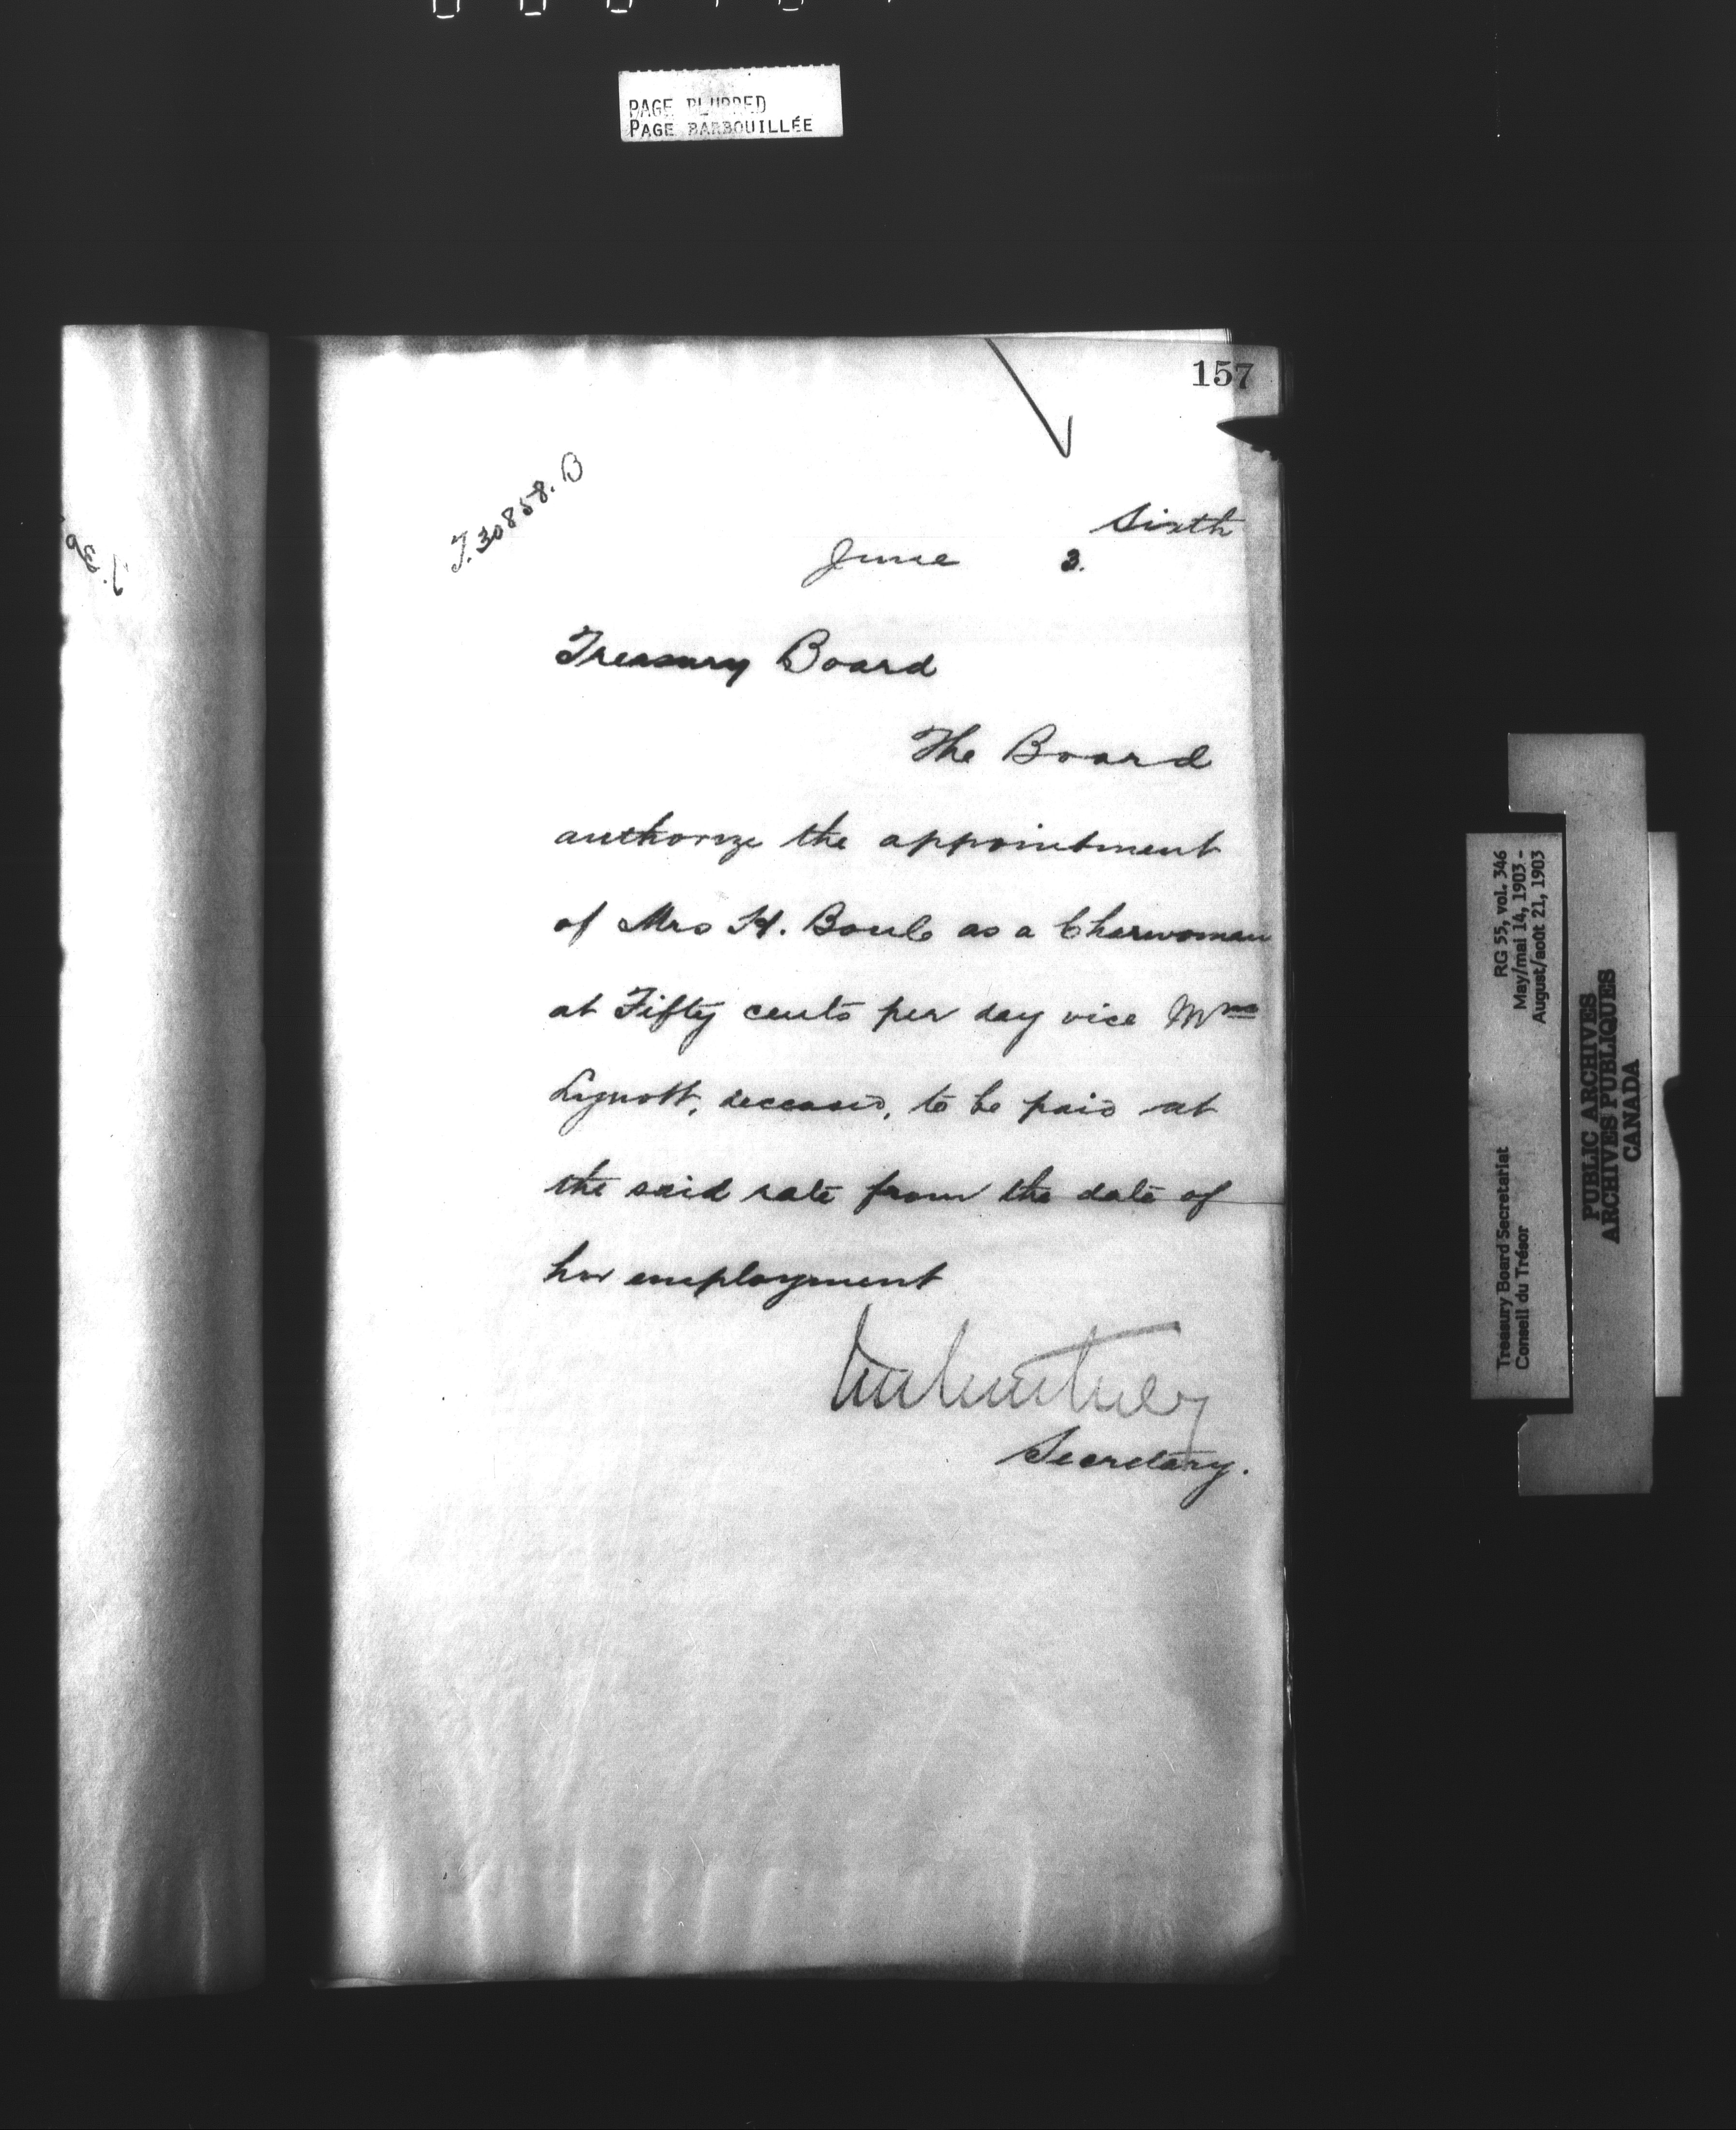 PAGE BLURRED
PAGE BARBOUILLÉE
157
T.30858.B
Sixth
June 3.
Treasury Board
The Board
authorize the appointment
of Mrs H. Boulé as a Charwoman
at Fifty cents per day vice Mrs
Lynott, deceased, to be paid at
the said rate from the date of
her employment
Secretary.
RG 55, vol. 346
May/mai 14, 1903 -
August/août 21, 1903
Treasury Board Secretariat
Conseil du Trésor
PUBLIC ARCHIVES
ARCHIVES PUBLIQUES
CANADA